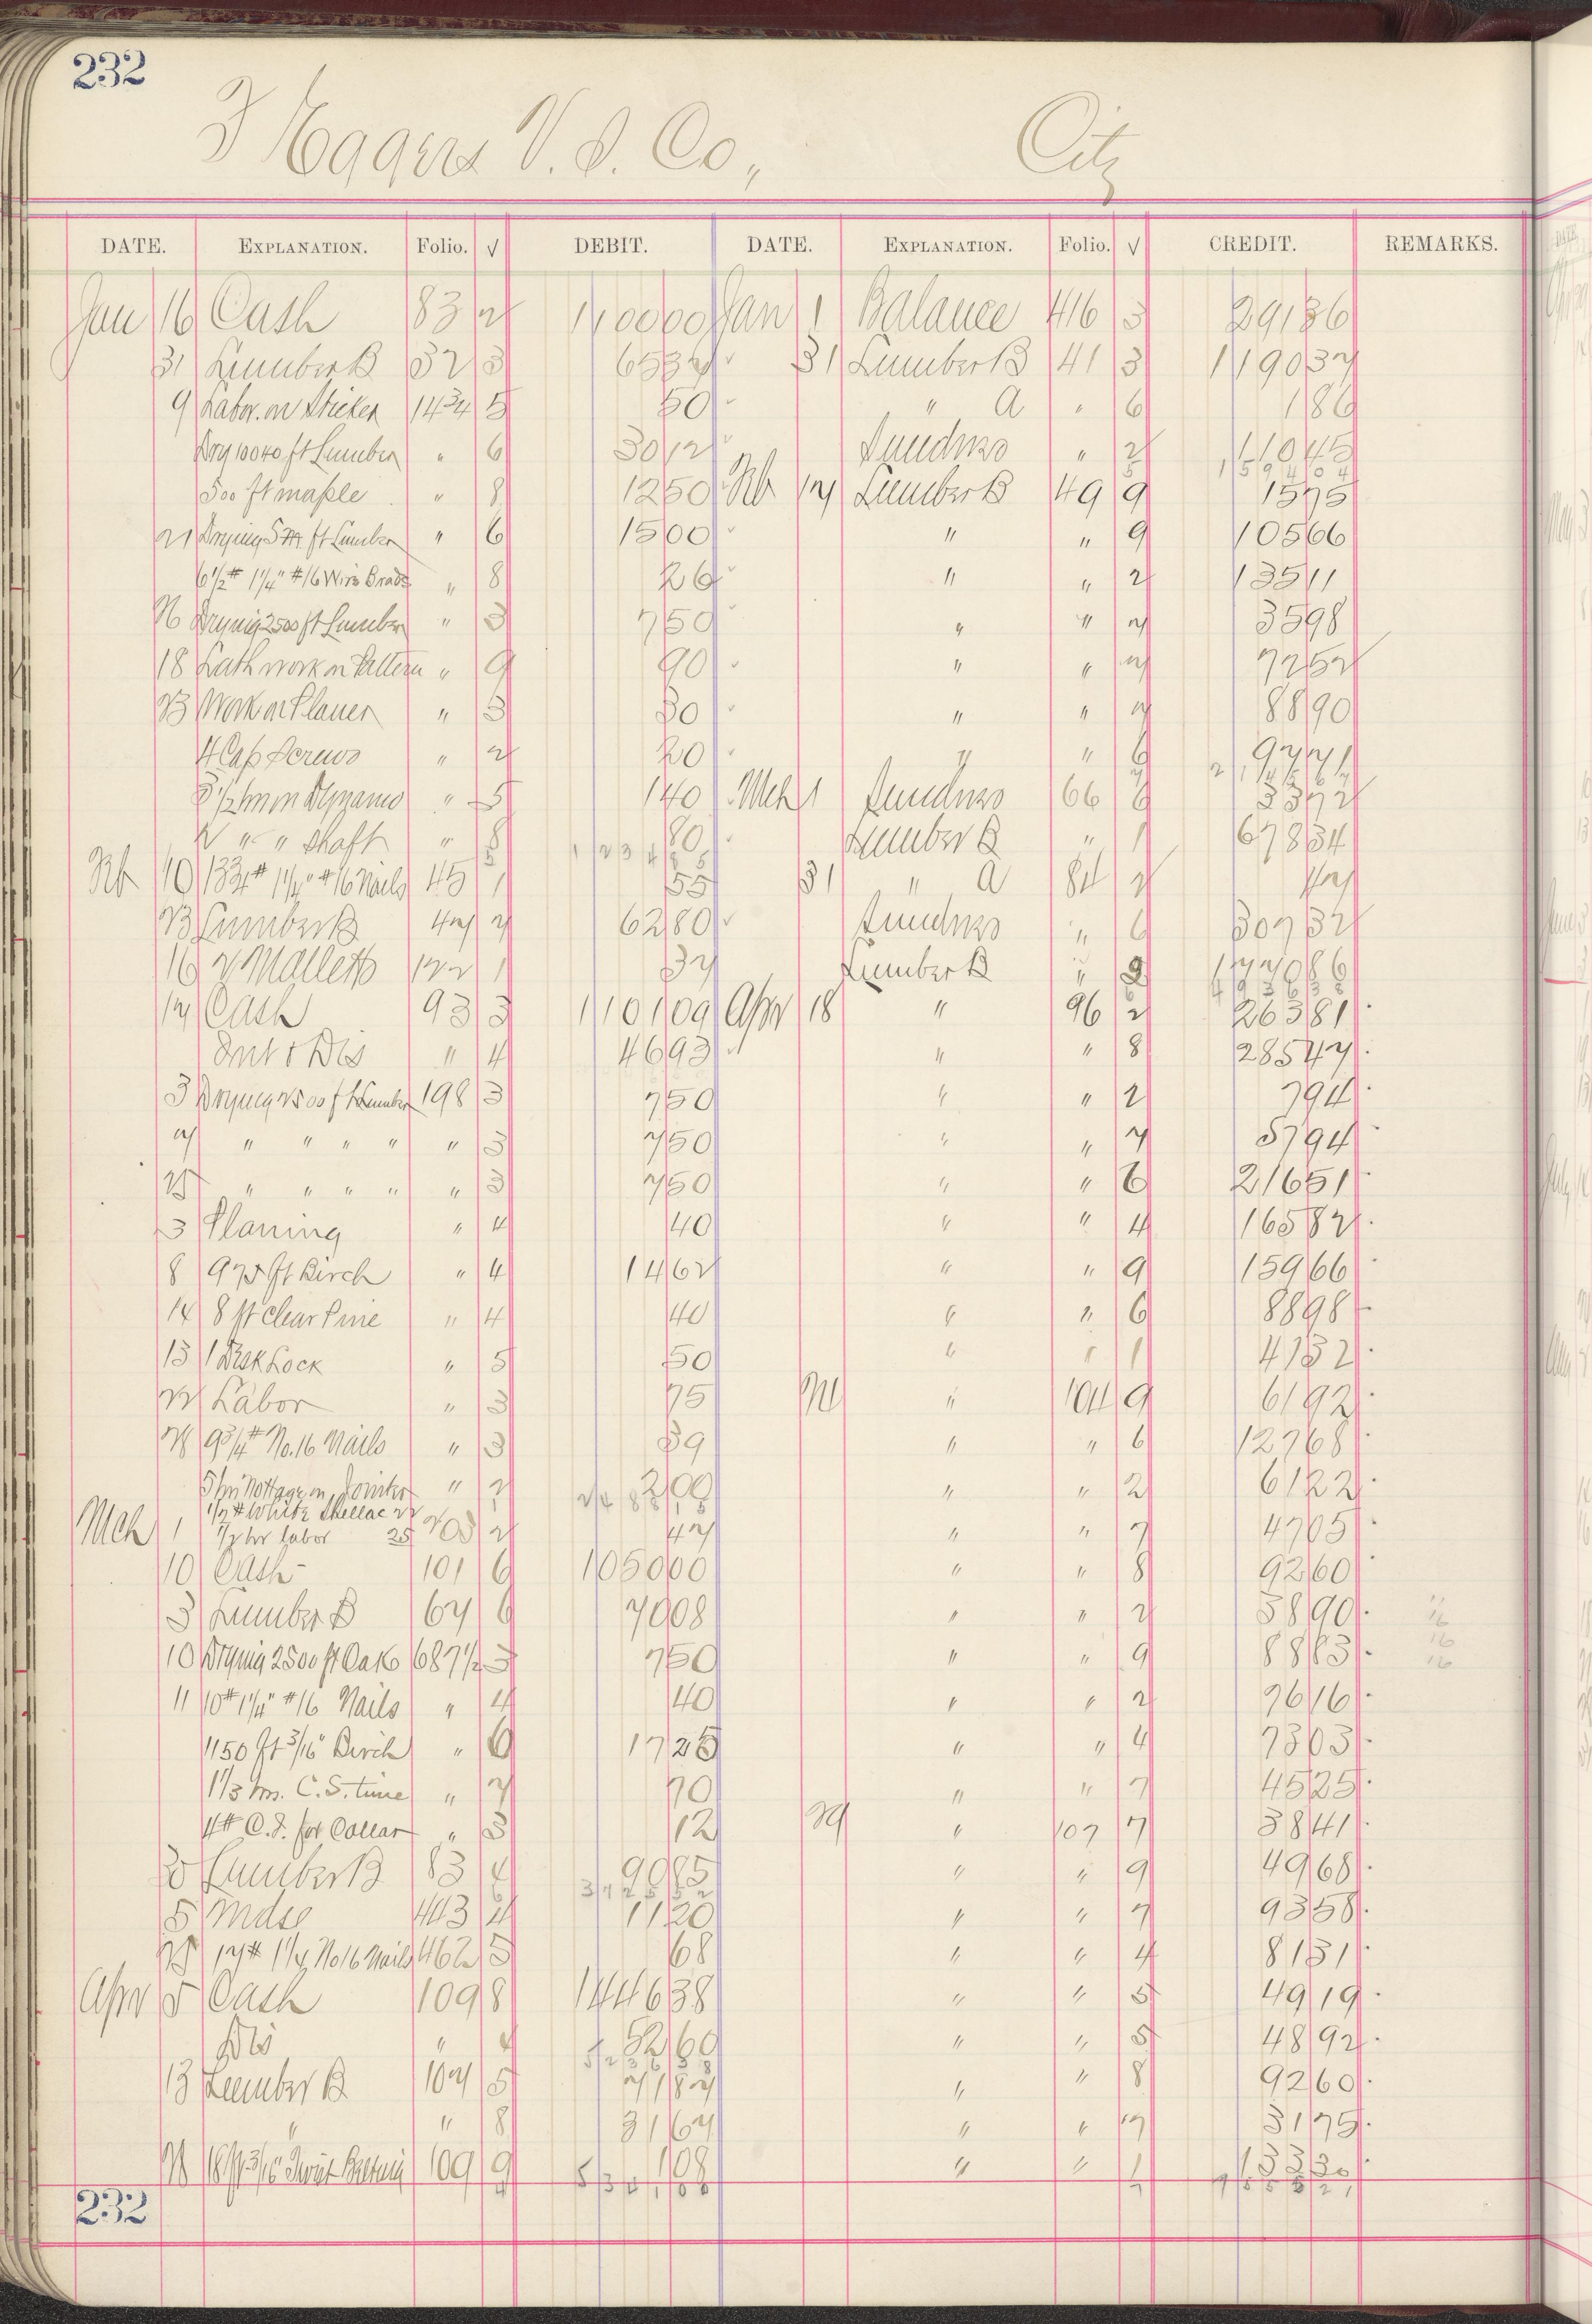 232
F Eggers V. S. Co., City
DATE. EXPLANATION. Folio. √ DEBIT. DATE. EXPLANATION. Folio. √ CREDIT. REMARKS.
Jan 16 Cash 83 2 1100 00 Jan 1 Balance 416 3 291 36
31 Lumber B 32 3 65 32 31 Lumber B 41 3 1190 37
9 Labor on Sticker 1434 5 50 " A " 6 1 86
Dry 10040 ft Lumber " 6 30 12 Sundries " 2 110 45
500 ft maple " 8 12 50 Feb 17 Lumber B 49 9 15 75
21 Drying 5 M ft Lumber " 6 15 00 " " 9 105 66
6 1/2 # 1 1/4" #16 Wire Brads " 8 26 " " 2 135 11
26 Drying 2500 ft Lumber " 3 7 50 " " 7 35 98
18 Lath work on Pattern " 9 90 " " 7 72 52
23 Work on Planer " 3 30 " " 7 88 90
4 Cap Screws " 2 20 " " 6 97 71
3 1/2 hrs on Dynamo " 5 1 40 Mch 1 Sundries 66 6 33 72
2 " " shaft " 8 80 Lumber B " 1 678 34
Feb 10 13 3/4 # 1 1/4" #16 Nails 45 1 55 31 " A 84
23 Lumber B 47 7 62 80 Sundries " 6 307 32
16 2 Mallets 122 1 37 Lumber B " 9
17 Cash 93 3 1101 09 Apr 18 " 96 2 263 81
Int & Dis " 4 46 93 " " 8 285 47
3 Drying 2500 ft Lumber 198 3 7 50 " " 2 7 94
7 " " " " " 3 7 50 " " 7 57 94
25 " " " " " 3 7 50 " " 6 216 51
3 Planing " 4 40 " " 4 165 82
8 975 ft Birch " 4 14 62 " " 9 159 66
14 8 ft Clear Pine " 4 40 " " 6 88 98
15 1 Desk Lock " 5 50 " " 1 41 32
22 Labor " 3 75 21 " 104 9 61 92
28 9 3/4 # No. 16 Nails " 3 39 " " 6 127 68
5 hrs Nottage on Jointer " 2 2 00 " " 2 61 22
1/2 # White Shellac 22
Mch 1 1/2 hr labor 25 205 2 47 " " 7 47 05
10 Cash 101 6 1050 00 " " 8 92 60
3 Lumber B 67 6 70 08 " " 2 58 90
10 Drying 2500 ft Oak 687 1/2 3 7 50 " " 9 88 83
11 10# 1 1/4" #16 Nails " 4 40 " " 2 76 16
1150 ft 3/16" Birch " 6 17 25 " " 4 73 03
1 1/3 hrs. C. S. time " 7 70 " " 7 45 25
4# C. I. for Collar " 3 12 29 " 107 7 38 41
30 Lumber B 83 4 90 85 " " 9 49 68
5 Mdse 443 4 11 20 " " 7 93 58
25 17# 1 1/4 No 16 Nails 462 5 68 " " 4 81 31
Apr 5 Cash 109 8 1446 38 " " 5 49 19
Dis " 52 60 " " 5 48 92
13 Lumber B 107 5 71 87 " " 8 92 60
" " 8 31 67 " " 7 31 75
109 9 1 08 " " 1 133 30
232